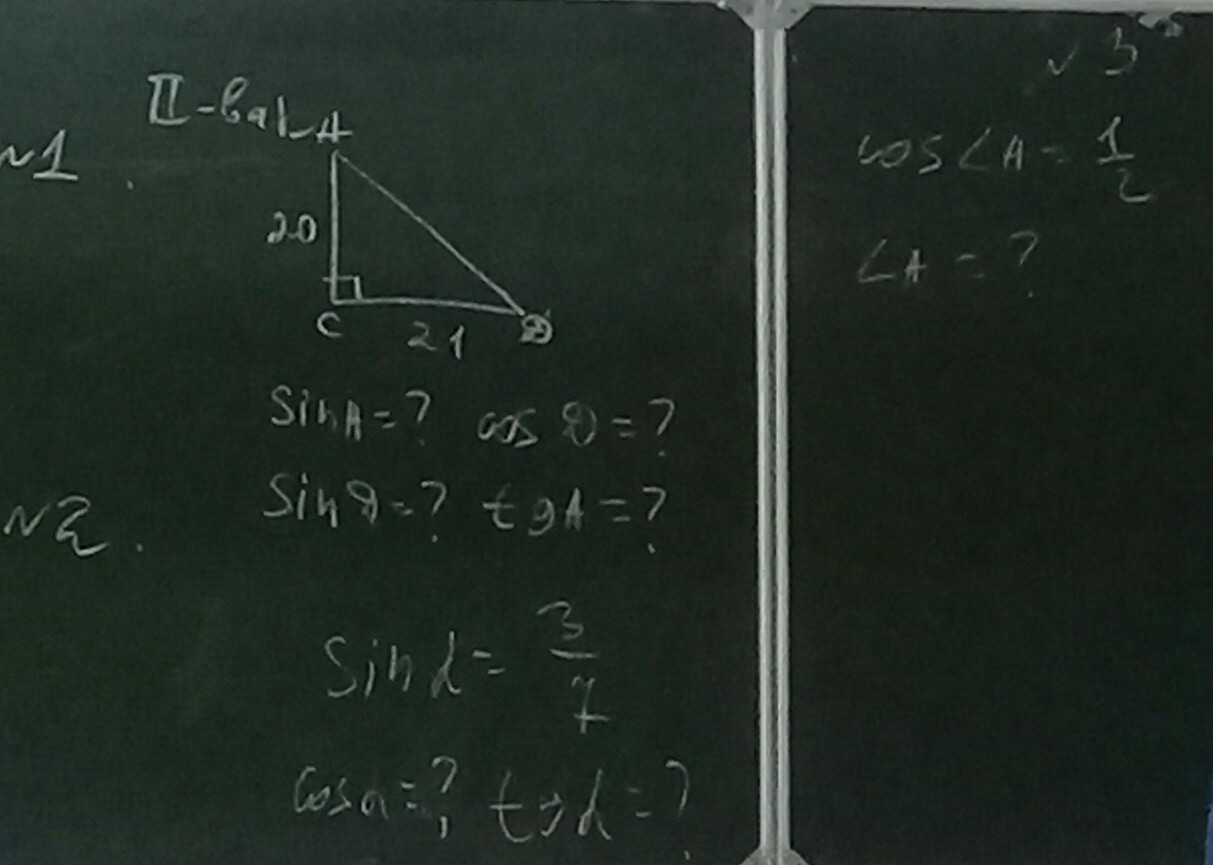 II-вар
№1.
A
20
C
21
D
sinA=? cos D=?
sinD=? tgA=?
№2.
sin α = 3/7
cosα=? tgα=?
№3
cos∠A = 1/2
∠A = ?